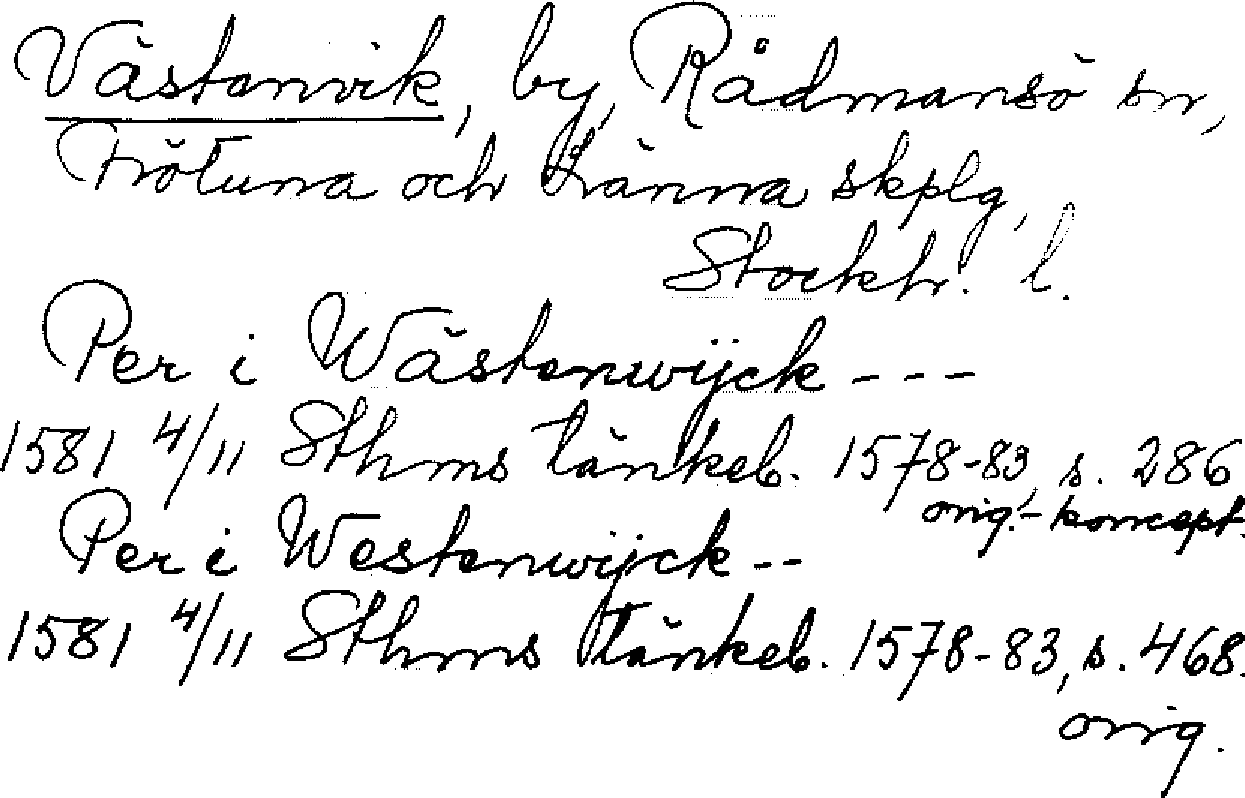 Västanvik, by, Rådmansö sn,
Frötuna och Länna skplg,
Stockh. l.
Per i Wästanwijck - - -
1581 4/11 Sthms tänkeb. 1578-83, s. 286
orig.-koncept.
Per i Westanwijck - -
1581 4/11 Sthms tänkeb. 1578-83, s. 468.
orig.